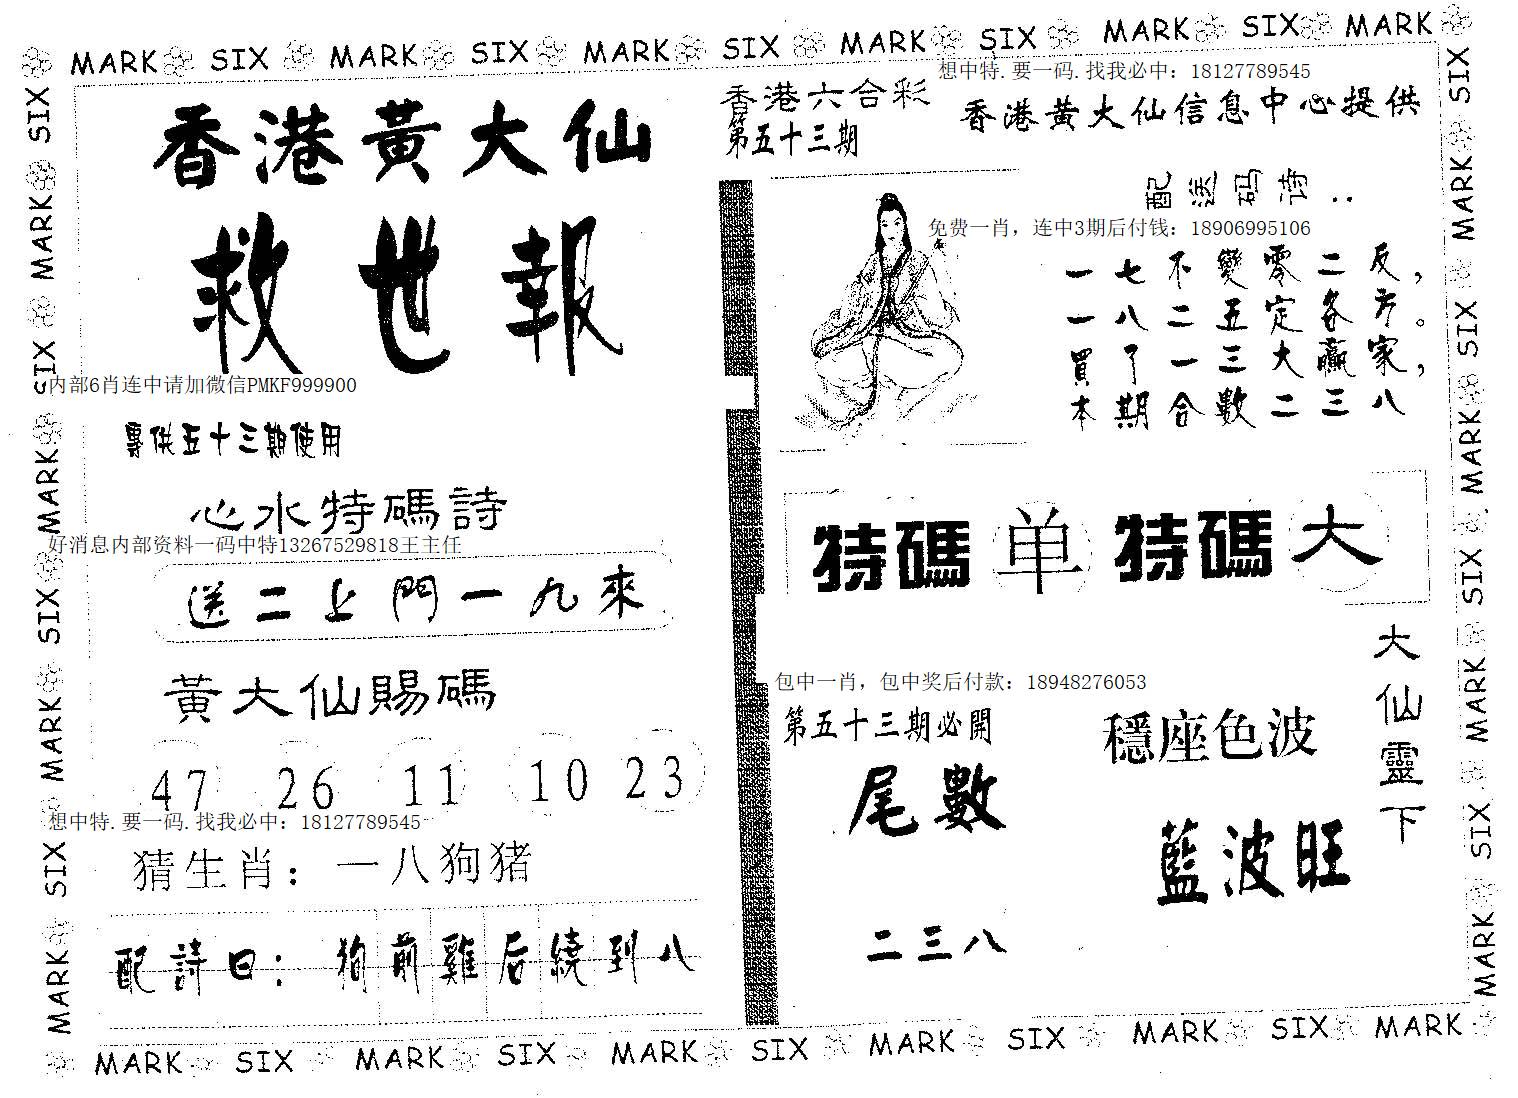 MARK SIX MARK SIX MARK SIX MARK SIX MARK SIX MARK
香港黃大仙
救世報
内部6肖连中请加微信PMKF999900
專供五十三期使用
心水特碼詩
好消息内部资料一码中特13267529818王主任
送二上門一九來
黃大仙賜碼
47 26 11 10 23
想中特.要一码.找我必中：18127789545
猜生肖：一八狗猪
配詩曰：狗前雞后繞到八
香港六合彩
第五十三期
想中特.要一码.找我必中：18127789545
香港黃大仙信息中心提供
配送码诗..
免费一肖，连中3期后付钱：18906995106
一七不變零二反，
一八二五定各方。
買了一三大贏家，
本期合數二三八
特碼单 特碼大
包中一肖，包中奖后付款：18948276053
第五十三期必開
尾數
二三八
穩座色波
藍波旺
大仙靈下
SIX MARK SIX MARK SIX MARK SIX MARK
SIX MARK SIX MARK SIX MARK SIX MARK
MARK SIX MARK SIX MARK SIX MARK SIX MARK SIX MARK